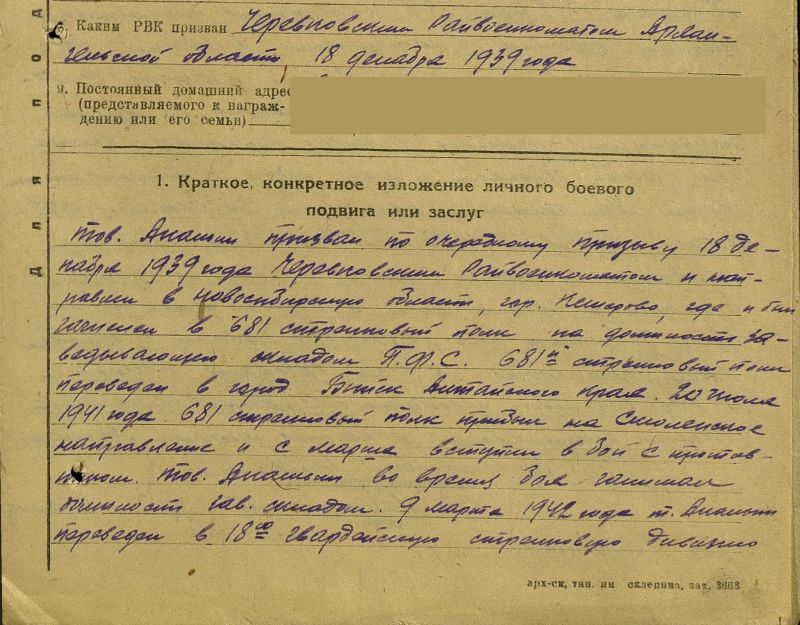 Каким РВК призван Черевковским Райвоенкоматом Архан-
гельской области 18 декабря 1939 года
9. Постоянный домашний адрес
(представляемого к награж-
дению или его семьи)
Для под
1. Краткое, конкретное изложение личного боевого
подвига или заслуг
тов. Ананьин призван по очередному призыву 18 де-
кабря 1939 года Черевковским Райвоенкоматом и нап-
равлен в Новосибирскую область, гор. Кемерово, где и был
зачислен в 681 стрелковый полк на должность за-
ведывающего складом П.Ф.С. 681й стрелковый полк
переведен в город Бийск Алтайского края. 20 июля
1941 года 681 стрелковый полк прибыл на Смоленское
направление и с марша вступил в бой с против-
ником. тов. Ананьин во время боя занимал
должность зав. складом. 9 марта 1942 года т. Ананьин
переведен в 18ую гвардейскую стрелковую дивизию
арх-ск, тип. им склепина, зак. 3663